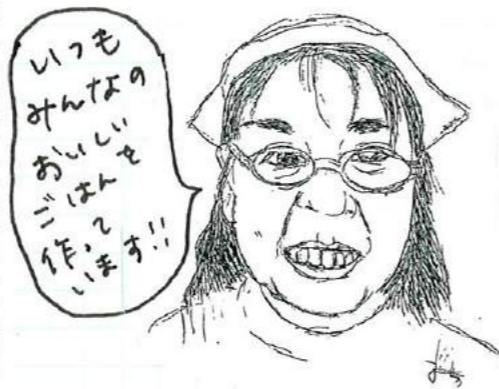 いつも
みんなの
おいしい
ごはんを
作って
います!!